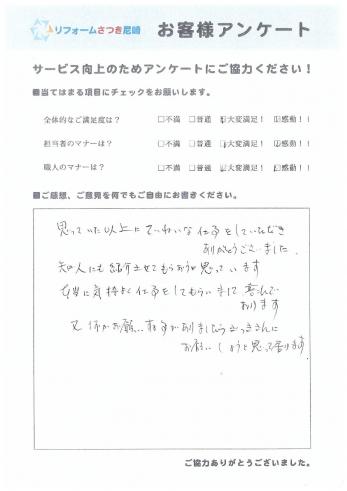 リフォームさつき尼崎 お客様アンケート
サービス向上のためアンケートにご協力ください！
■当てはまる項目にチェックをお願いします。
全体的なご満足度は？ □不満 □普通 □大変満足！ □感動！！
担当者のマナーは？ □不満 □普通 □大変満足！ □感動！！
職人のマナーは？ □不満 □普通 □大変満足！ □感動！！
■ご感想、ご意見を何でもご自由にお書きください。
思っていた以上にていねいな仕事をしていただき
ありがとうございました。
知人にも紹介させてもらおうと思っています
本当に気持よく仕事をしてもらいまして 喜んで
おります
又 何かお願いする事がありましたらさつきさんに
お願いしようと思って居ります
ご協力ありがとうございました。